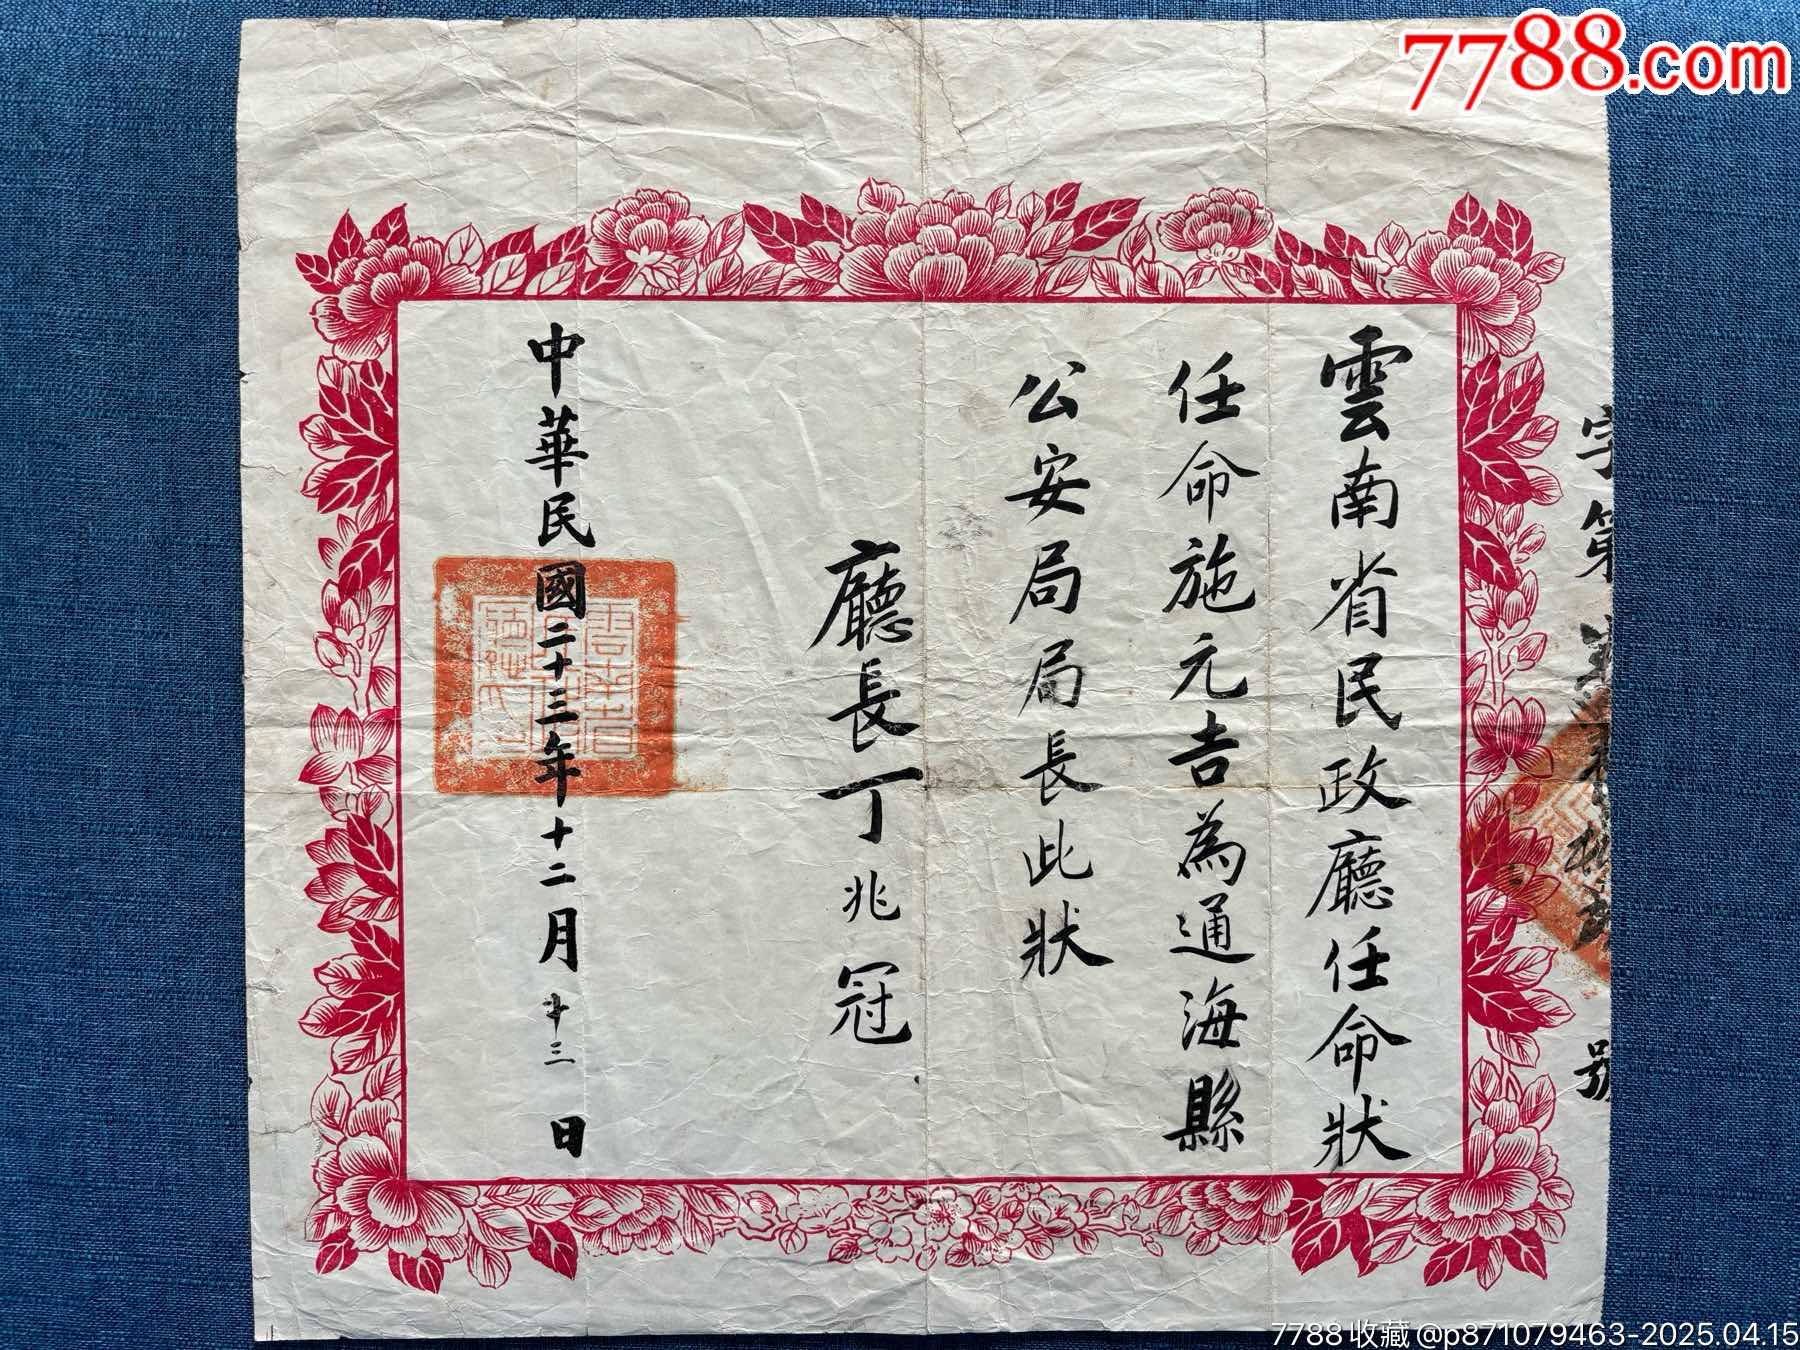 7788.com
字第
號
雲南省民政廳任命狀
任命施元吉為通海縣
公安局局長此狀
廳長丁兆冠
中華民國二十三年十二月十三日
7788收藏@p871079463-2025.04.15